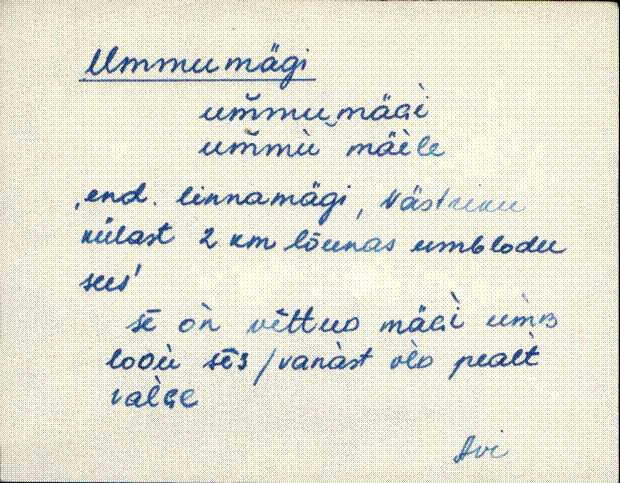 Ummumägi
um̆mu‿mäɢì
um̆mù mäile
‚end. linnamägi, Västriku
külast 2 km lõunas umblodu
sees'
sē òǹ vettuo mäɢì
looù / vanàst pealt
valɢe
Avi